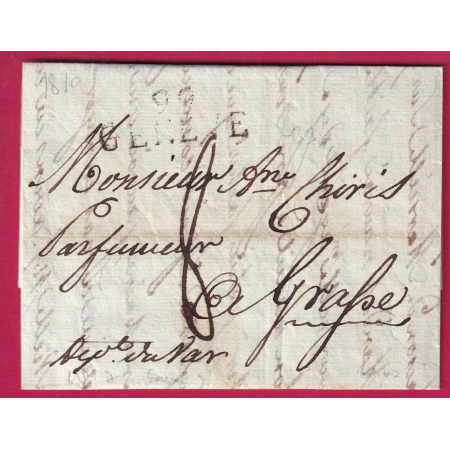 1810
99
GENEVE
Monsieur Ane Chiris
Parfumeur
8
a Grasse
Dept. du Var